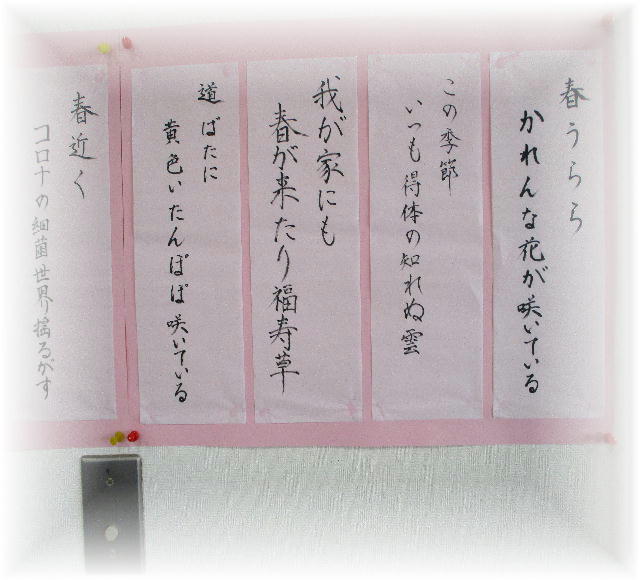 春うらら
かれんな花が咲いている
この季節
いつも得体の知れぬ雲
我が家にも
春が来たり福寿草
道ばたに
黄色いたんぽぽ咲いている
春近く
コロナの細菌世界り揺るがす